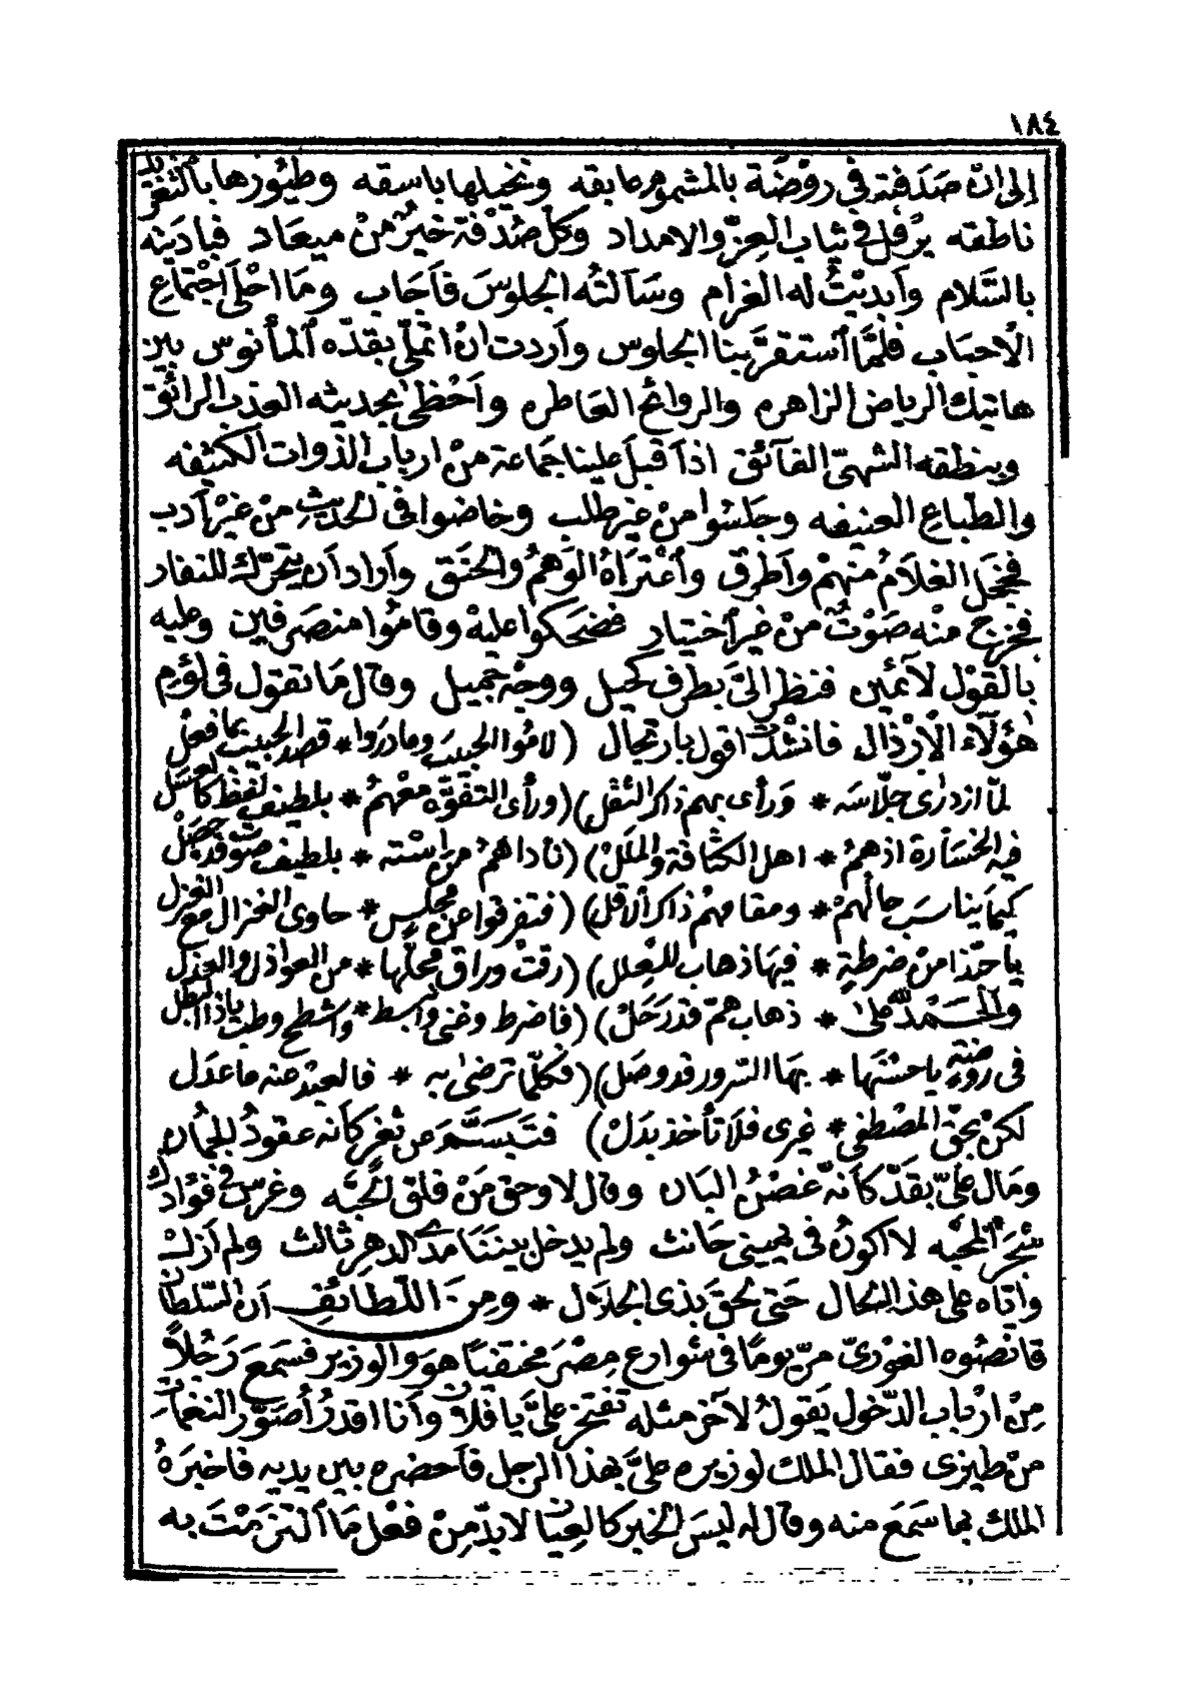 ١٨٤
إلى ان صَدَفته في روْضَة بالمشموم عابقه ونخيلها باسقه وطيُورها بالتغريد
ناطقه يرْفل في ثياب العِزّ والامداد وكل صُدْفة خيرٌ منْ ميعَاد فبادَيته
بالسَّلام وأبديْتُ له الغرام وسَألتُه الجلوسَ فأجَاب ومَا احْلَى اجْتماع
الاحبَاب فلمَّا استقرَّ بنا الجلوس وأردت انْ اتملّى بقدّه المأنوس بين
هاتيك الرياض الزاهره والروائح العَاطره وأحْظىٰ بحديثه العذب الرائق
وبنطقه الشهىّ الفآئق اذ أقبل علينا جَمَاعة منْ ارباب الذوات الكثيفه
والطّباع العنيفه وجَلسُوا منْ غير طلب وخاضوا في الحديثِ من غيْر أدب
فخجل الغلامُ منهمْ وأطرق وأعْترَاهُ الوَهمُ والحنَق وأراد أن يتحرّك للنفار
فخرج منْه صَوْتٌ منْ غير اختيار فضحكوا عليهْ وقامُوا منصَرفين وعليه
بالقوْل لآئمين فنظر الىَّ بطرف كحيل ووجْه جميل وقال مَا تقول فى لؤم
هٰؤلآء الأرْذال فانشدْت اقول بارتجال (لامُوا الحبيبَ وما درَوا * قصد الحبيب بما فعلْ
لمّا ازدرٰى جلّاسَه * وَرأى بهم ذاكر الثقل) (ورأى التفوّه معْهمُ * بلطيف لفظ كالعسَل
فيه الخسَارة اذ همُ * اهل الكثافة والملَلْ) (ناداهمُ من اسْته * بلطيف صوْت قد حصَلْ
كيما يناسب حالهمْ * ومقامهمْ ذاك الاقل) (فتفرقوا عن مجلس * حاوى الغزال مع الغزل
يا حبّذا منْ ضرطةٍ * فيهَا ذهاب للْعِلل) (رقتْ وراق محلّها * من العواذل والعذل
والحَمْدُ لله علىٰ * ذهاب همّ قد رَحَلْ) (فاضرط وغنى وانبسط * واشطح وطب يا ذا البطل
فى روْضةٍ يا حسْنَها * بهَا السّرور قد وصَل) (فكلّما ترضىٰ به * فالعبْد عنه ما عدَل
لكنْ بحقّ المصْطفى * غيرى فلا تأخذ بدَلْ) فتبسَّمَ عن ثغر كأنه عقودُ الجُمان
ومَال علىّ بقدّ كأنه غصْنُ البَان وقال لا وحق مَنْ فلق الحبَّه وغرس في فؤادك
شجَرَ المحبَّه لا اكونُ فى يمينى حَانث ولم يدخل بينَنَا مَدَى الدهر ثالث ولم أزلْ
واياه على هذا الحَال حَتى لحقَ بذى الجلال * ومِنَ اللّطائف أن السّلطان
قانصُوه الغورىّ مرّ يومًا فى شوارع مِصْرَ مختفيًا هوَ والوزير فسَمعَ رَجُلاً
مِنْ ارْباب الدّخول يَقولُ لآخر مثله تفتخر علىَّ يا فلان وأنا اقدرُ أصَوّر النغمَات
منْ طيزى فقال الملك لوزيره علىَّ بهذا الرجل فأحضره بين يديه فاخبرَهُ
الملك بما سَمعَ منه وقال له ليسَ الخبر كالعيان لا بدّ مِنْ فعْل مَا التزمْتَ به